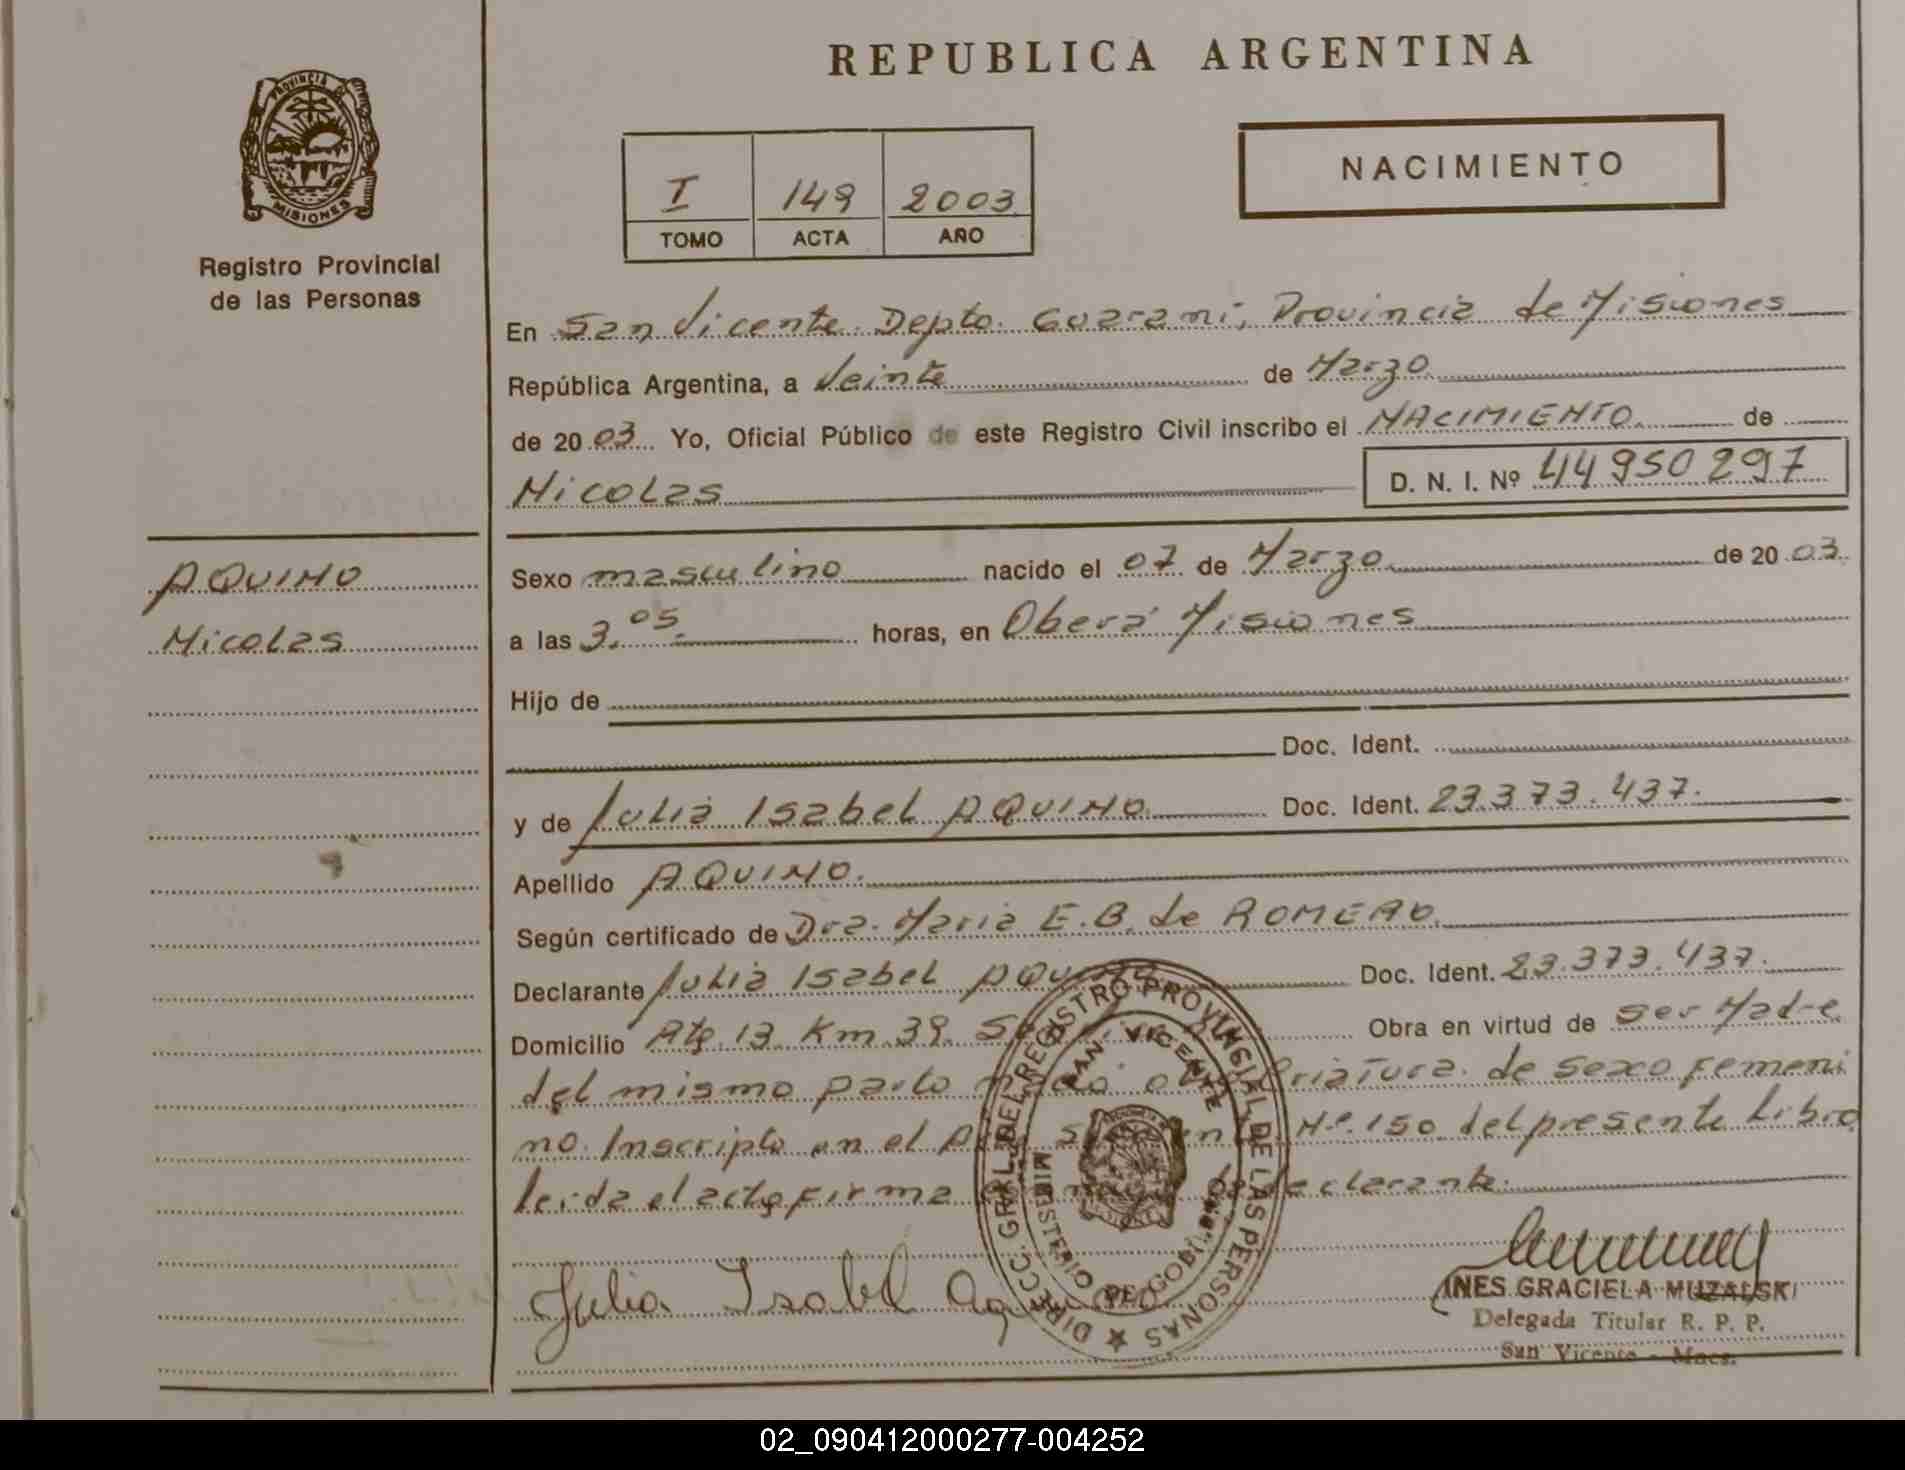 REPUBLICA ARGENTINA
PROVINCIA DE
MISIONES
Registro Provincial
de las Personas
I 149 2003
TOMO ACTA AÑO
NACIMIENTO
En San Vicente. Depto. Guarani, Provincia de Misiones
República Argentina, a Veinte de Marzo
de 20 03 Yo, Oficial Público de este Registro Civil inscribo el NACIMIENTO de
Nicolas D. N. I. Nº 44950297
AQUINO
Nicolas
Sexo masculino nacido el 07 de Marzo de 20 03
a las 3.05. horas, en Oberá Misiones
Hijo de
Doc. Ident.
y de Julia Isabel AQUINO Doc. Ident. 23.373.437.
Apellido AQUINO.
Según certificado de Dra. Maria E.B. de ROMERO.
Declarante Julia Isabel AQUINO Doc. Ident. 23.373.437.
Domicilio Km 39. Obra en virtud de ser Madre
del mismo parto nació otra criatura de sexo femeni
no. Inscripto en el Nº 150 del presente Libro
leida el acta firma declarante.
DIRECC. GRAL. DEL REGISTRO PROVINCIAL DE LAS PERSONAS
SAN VICENTE
MINISTERIO DE GOBIERNO
Julia Isabel Aquino
INES GRACIELA MUZALSKI
Delegada Titular R. P. P.
San Vicente - Mnes.
02_090412000277-004252